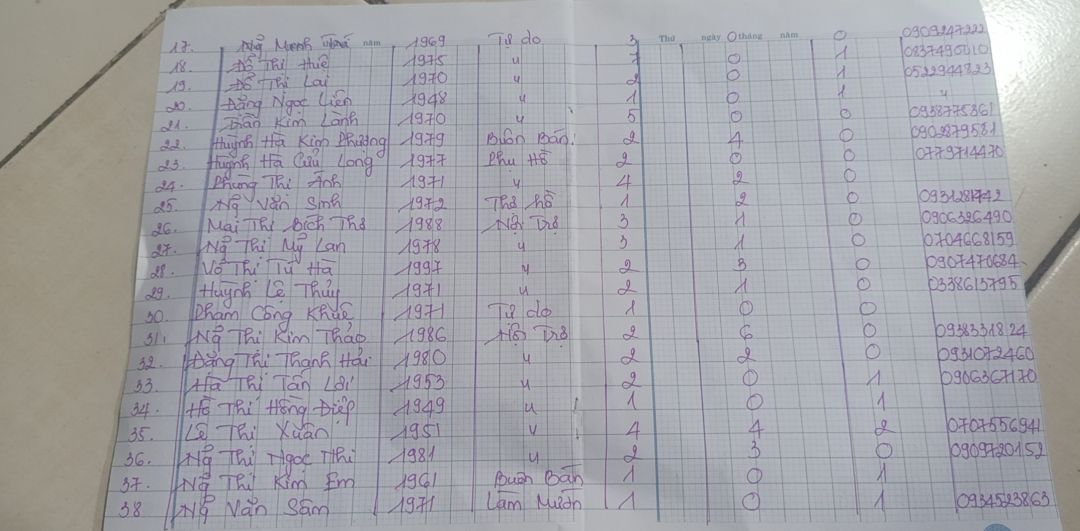 17. Ng̃ Mạnh năm 1969 Tự do 3 Thứ ngày 0 tháng năm 0 0909247222
18. Đỗ Thị Huê 1975 〃 7 0 1 0837490010
19. Đỗ Thị Lai 1970 〃 2 0 1 0522944823
20. Đặng Ngọc Liên 1948 〃 1 0 1 〃
21. Trần Kim Lành 1970 〃 5 0 0 0938775361
22. Huỳnh Hà Kim Phương 1979 Buôn Bán. 2 4 0 0902879581
23. Huỳnh Hà Cửu Long 1977 Phụ Hồ 2 0 0 0779714470
24. Phùng Thị Ánh 1971 〃 4 2 0
25. Ng̃ Văn Sinh 1972 Thợ hồ 1 2 0 0931281742
26. Mai Thị Bích Thơ 1988 Nội Trợ 3 1 0 0906326490
27. Ng̃ Thị Mỹ Lan 1978 〃 3 1 0 0704668159
28. Võ Thị Tú Hà 1997 〃 2 3 0 0907470684
29. Huỳnh Lệ Thủy 1971 〃 2 1 0 0338613795
30. Phạm Công Khuê 1971 Tự do 1 0 0
31. Ng̃ Thị Kim Thảo 1986 Nội Trợ 2 6 0 0938331824
32. Đặng Thị Thanh Hải 1980 〃 2 2 0 0931072460
33. Hà Thị Tấn Lợi 1953 〃 2 0 1 0906367170
34. Hồ Thị Hồng Điệp 1949 〃 1 0 1
35. Lê Thị Xuân 1951 〃 4 4 2 0707556941
36. Ng̃ Thị Ngọc Nhi 1981 〃 2 3 0 0909720152
37. Ng̃ Thị Kim Em 1961 Buôn Bán 1 0 1
38 Ng̃ Văn Sâm 1971 Làm Mướn 1 0 1 0934523863